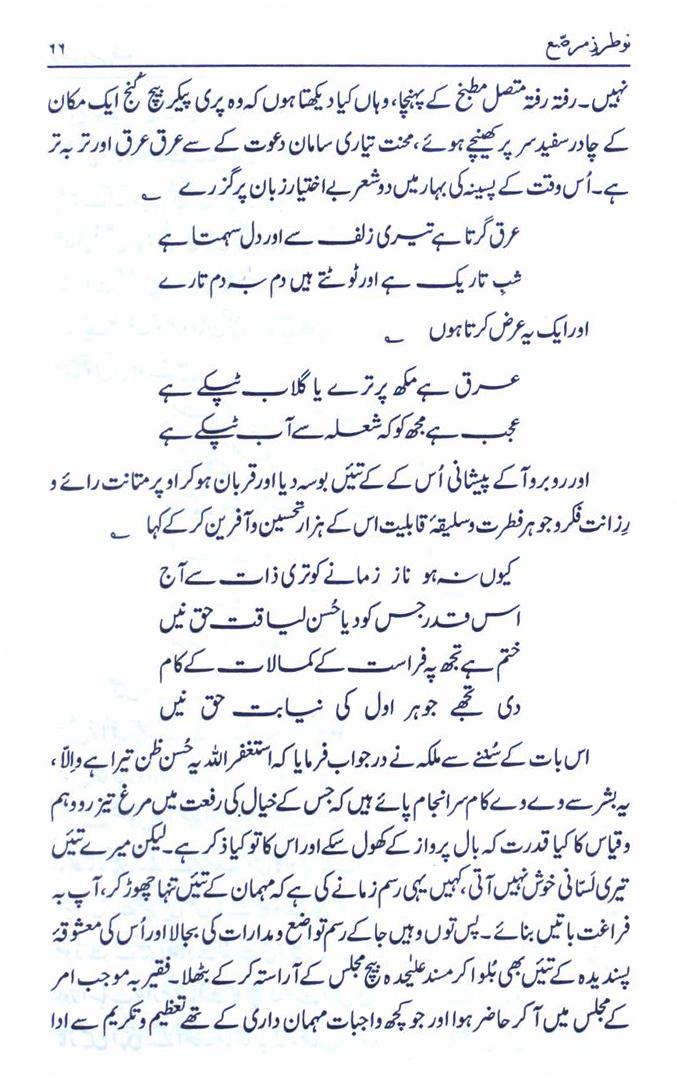 نو طرزِ مرصّع ۶۶
نہیں۔ رفتہ رفتہ متصل مطبخ کے پہنچا، وہاں کیا دیکھتا ہوں کہ وہ پری پیکر بیچ کُنج ایک مکان
کے چادر سفید سر پر کھینچے ہوئے، محنت تیاری سامان دعوت کے سے عرق عرق اور تر بہ تر
ہے۔ اُس وقت کے پسینہ کی بہار میں دو شعر بے اختیار زبان پر گزرے ؎
عرق گرتا ہے تیری زلف سے اور دل سہمتا ہے
شبِ تاریک ہے اور ٹوٹتے ہیں دم بہ دم تارے
اور ایک یہ عرض کرتا ہوں ؎
عرق ہے مکھ پر ترے یا گلاب ٹپکے ہے
عجب ہے مجھ کو کہ شعلہ سے آب ٹپکے ہے
اور روبرو آ کے پیشانی اُس کے کے تئیں بوسہ دیا اور قربان ہو کر اوپر متانت رائے و
رزانت فکر و جوہر فطرت و سلیقۂ قابلیت اس کے ہزار تحسین و آفرین کر کے کہا ؎
کیوں نہ ہو ناز زمانے کو تری ذات سے آج
اس قدر جس کو دیا حُسن لیاقت حق نیں
ختم ہے تجھ پہ فراست کے کمالات کے کام
دی تجھے جوہر اول کی نیابت حق نیں
اس بات کے سُننے سے ملکہ نے در جواب فرمایا کہ استغفر اللہ یہ حُسن ظن تیرا ہے واِلّا،
یہ بشر سے وے وے کام سرانجام پائے ہیں کہ جس کے خیال کی رفعت میں مرغ تیز رو وہم
و قیاس کا کیا قدرت کہ بال پرواز کے کھول سکے اور اس کا تو کیا ذکر ہے۔ لیکن میرے تئیں
تیری لَسّانی خوش نہیں آتی، کہیں یہی رسم زمانے کی ہے کہ مہمان کے تئیں تنہا چھوڑ کر، آپ بہ
فراغت باتیں بنائے۔ پس توں وہیں جا کے رسم تواضع و مدارات کی بجا لا اور اُس کی معشوقۂ
پسندیدہ کے تئیں بھی بُلوا کر مسند علیٰحدہ بیچ مجلس کے آراستہ کر کے بٹھلا۔ فقیر بہ موجب امر
کے مجلس میں آ کر حاضر ہوا اور جو کچھ واجبات مہمان داری کے تھے تعظیم و تکریم سے ادا